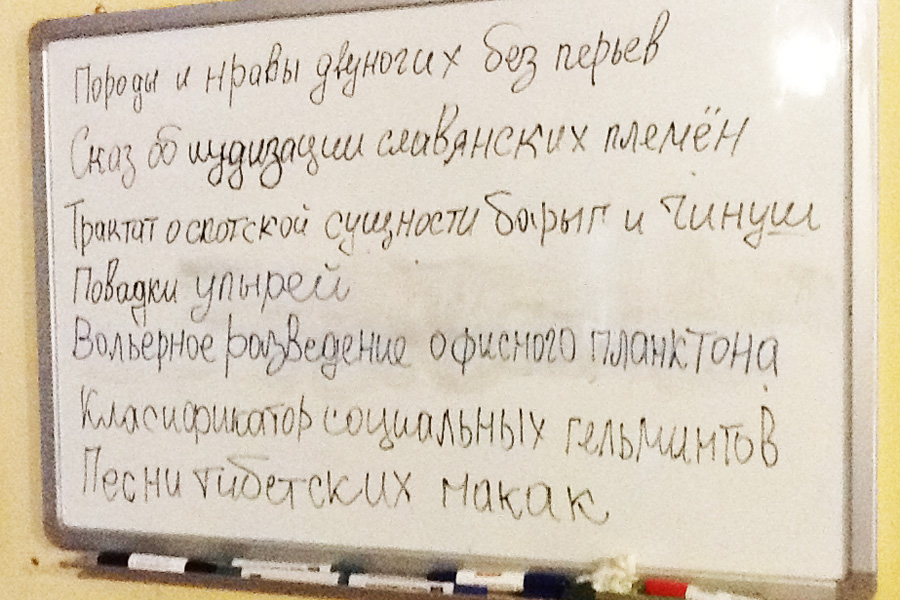 Породы и нравы двуногих без перьев
Сказ об иудизации славянских племён
Трактат о скотской сущности барыг и чинуш
Повадки упырей
Вольерное разведение офисного планктона
Класификатор социальных гельминтов
Песни тибетских макак